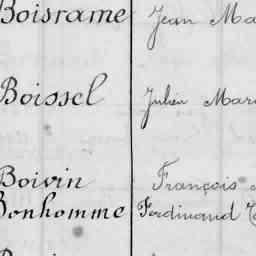 Boisrame Jean Ma
Boissel Julien Mari
Boivin François
Bonhomme Ferdinand